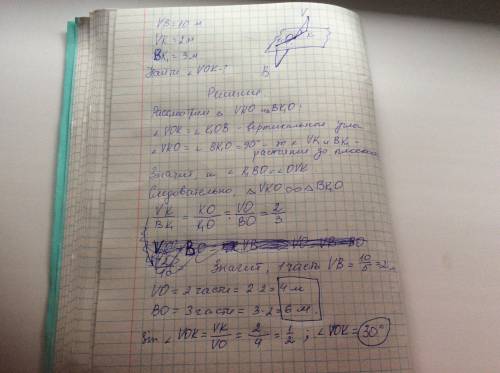 VB = 10 м
V
VK = 2 м
BK₁ = 3 м
Найти ∠VOK-?
B
Решение
Рассмотрим △ VKO и BK₁O:
∠VOK = ∠K₁OB - вертикальные углы
∠VKO = ∠BK₁O = 90° - т к VK и BK₁
расстояния до плоскости
Значит и ∠K₁BO = ∠OVK
Следовательно, △VKO ∞ △BK₁O
VK/BK₁ = KO/K₁O = VO/BO = 2/3
Значит, 1 часть VB = 10/5 = 2 м
VO = 2 части = 2·2 = 4 м
BO = 3 части = 3·2 = 6 м.
Sin ∠VOK = VK/VO = 2/4 = 1/2 ; ∠VOK = 30°